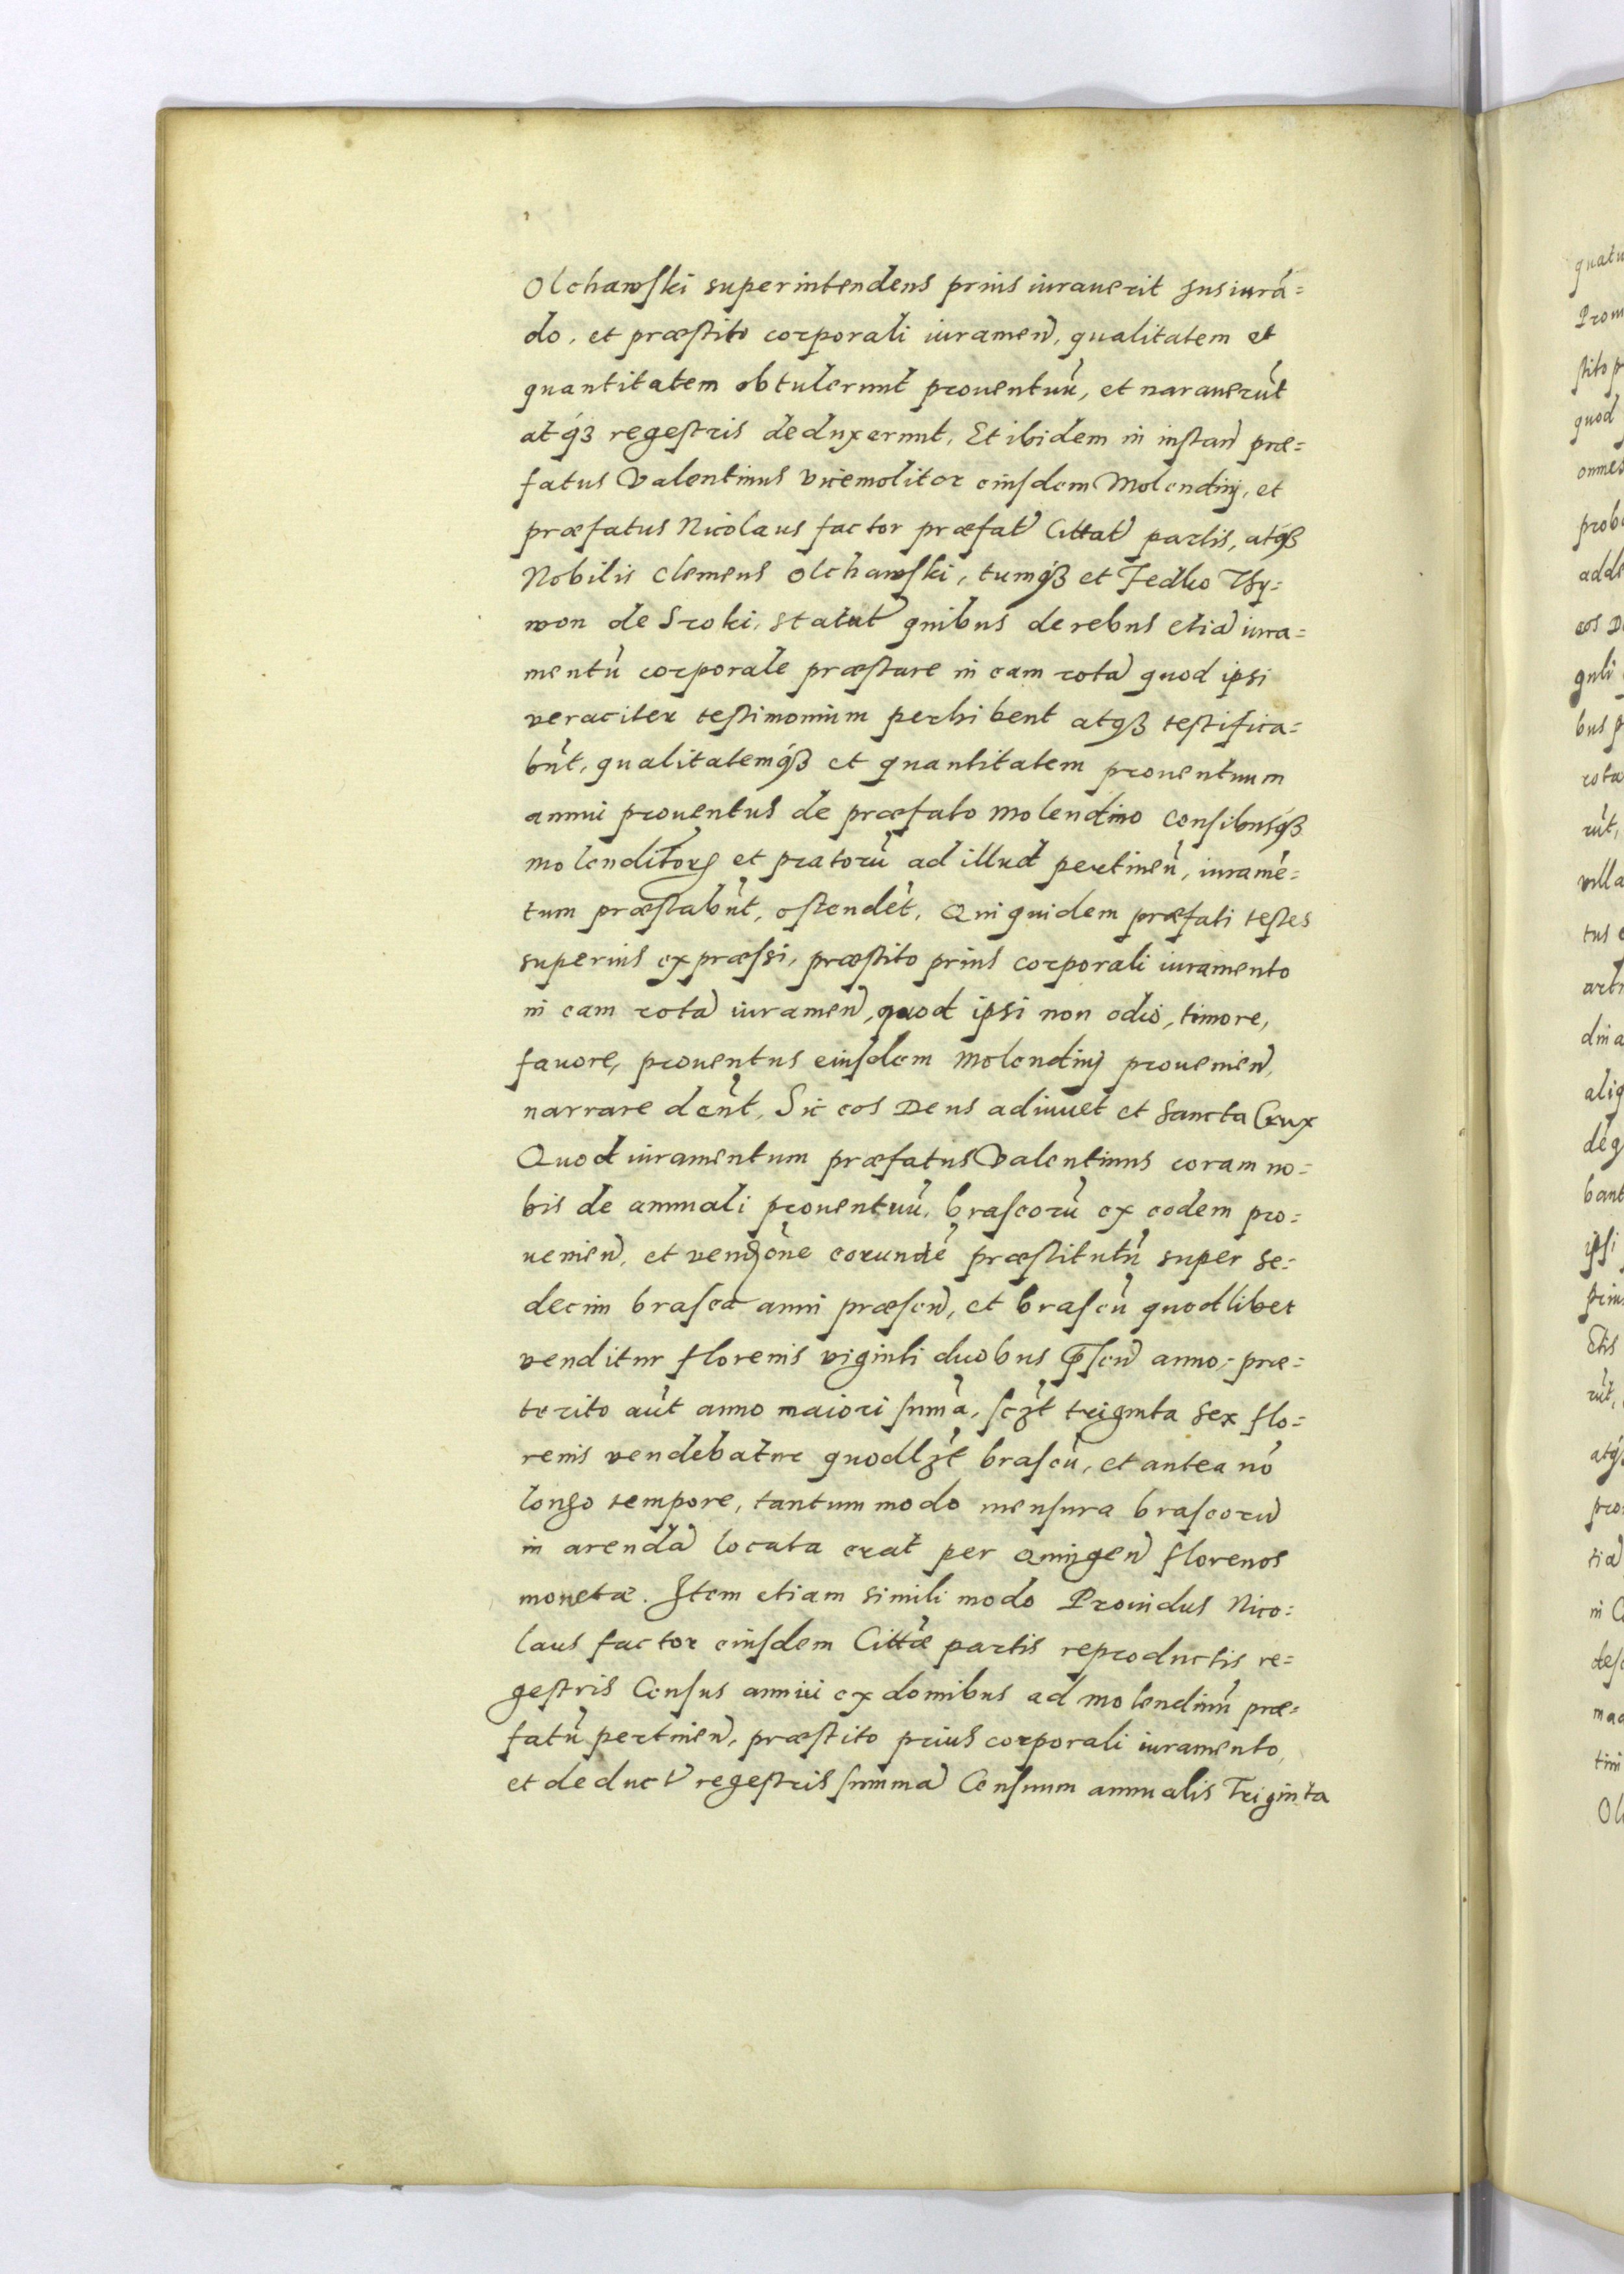 Olchawski superintendens prius iurauerit Jusiurā=
do, et præstito corporali iuramen̄, qualitatem et
quantitatem obtulerunt prouentuū, et narauerūt
atqꝫ regestris deduxerunt, Et ibidem in instan̄ præ=
fatus Valentinus vicemolitor eiusdem Molendinj, et
præfatus Nicolaus factor præfat̄ Cittat̄ partis, atqꝫ
Nobilis Clemens Olchawski, tumqꝫ et Fedko
won de Sroki, statut̄ quibus de rebus etiā iura=
mentū corporale præstare in eam rotā quod ipsi
veraciter testimonium perhibent atqꝫ testifica=
būt, qualitatemqꝫ et quantitatem prouentuum
annui prouentus de præfato molendino Censibusqꝫ
molenditorꝝ et pratorū ad illud pertinen̄, iuramē=
tum præstabūt, ostendēt. Qui quidem præfati testes
superius expræssi, præstito prius corporali iuramento
in eam rotā iuramen̄, quod ipsi non odio, timore,
fauore, prouentus eiusdem Molendinj prouenien̄,
narrare den̄t, Sic eos Deus adiuuet et Sancta Crux
Quod iuramentum præfatus Valentinus coram no=
bis de annuali prouentuū, braseorū ex eodem pro=
uenien̄, et vendone eorundē præstitutū super se=
decim brasea anni præsen̄, et braseū quodlibet
venditur florenis viginti duobus p̄sen̄ anno, præ=
terito aūt anno maiori summā, scꝫt triginta sex flo=
renis vendebatur quodlꝫt braseū, et antea nō
longo tempore, tantum modo mensura braseorū
in arendā locata erat per Quingen̄ florenos
monetæ. Item etiam simili modo Prouidus Nico=
laus factor eiusdem Cittæ partis reproductis re=
gestris Census annui ex domibus ad molendinū præ=
fatū pertinen̄, præstito prius corporali iuramento,
et deduct̄ regestris summā Censuum annualis Triginta